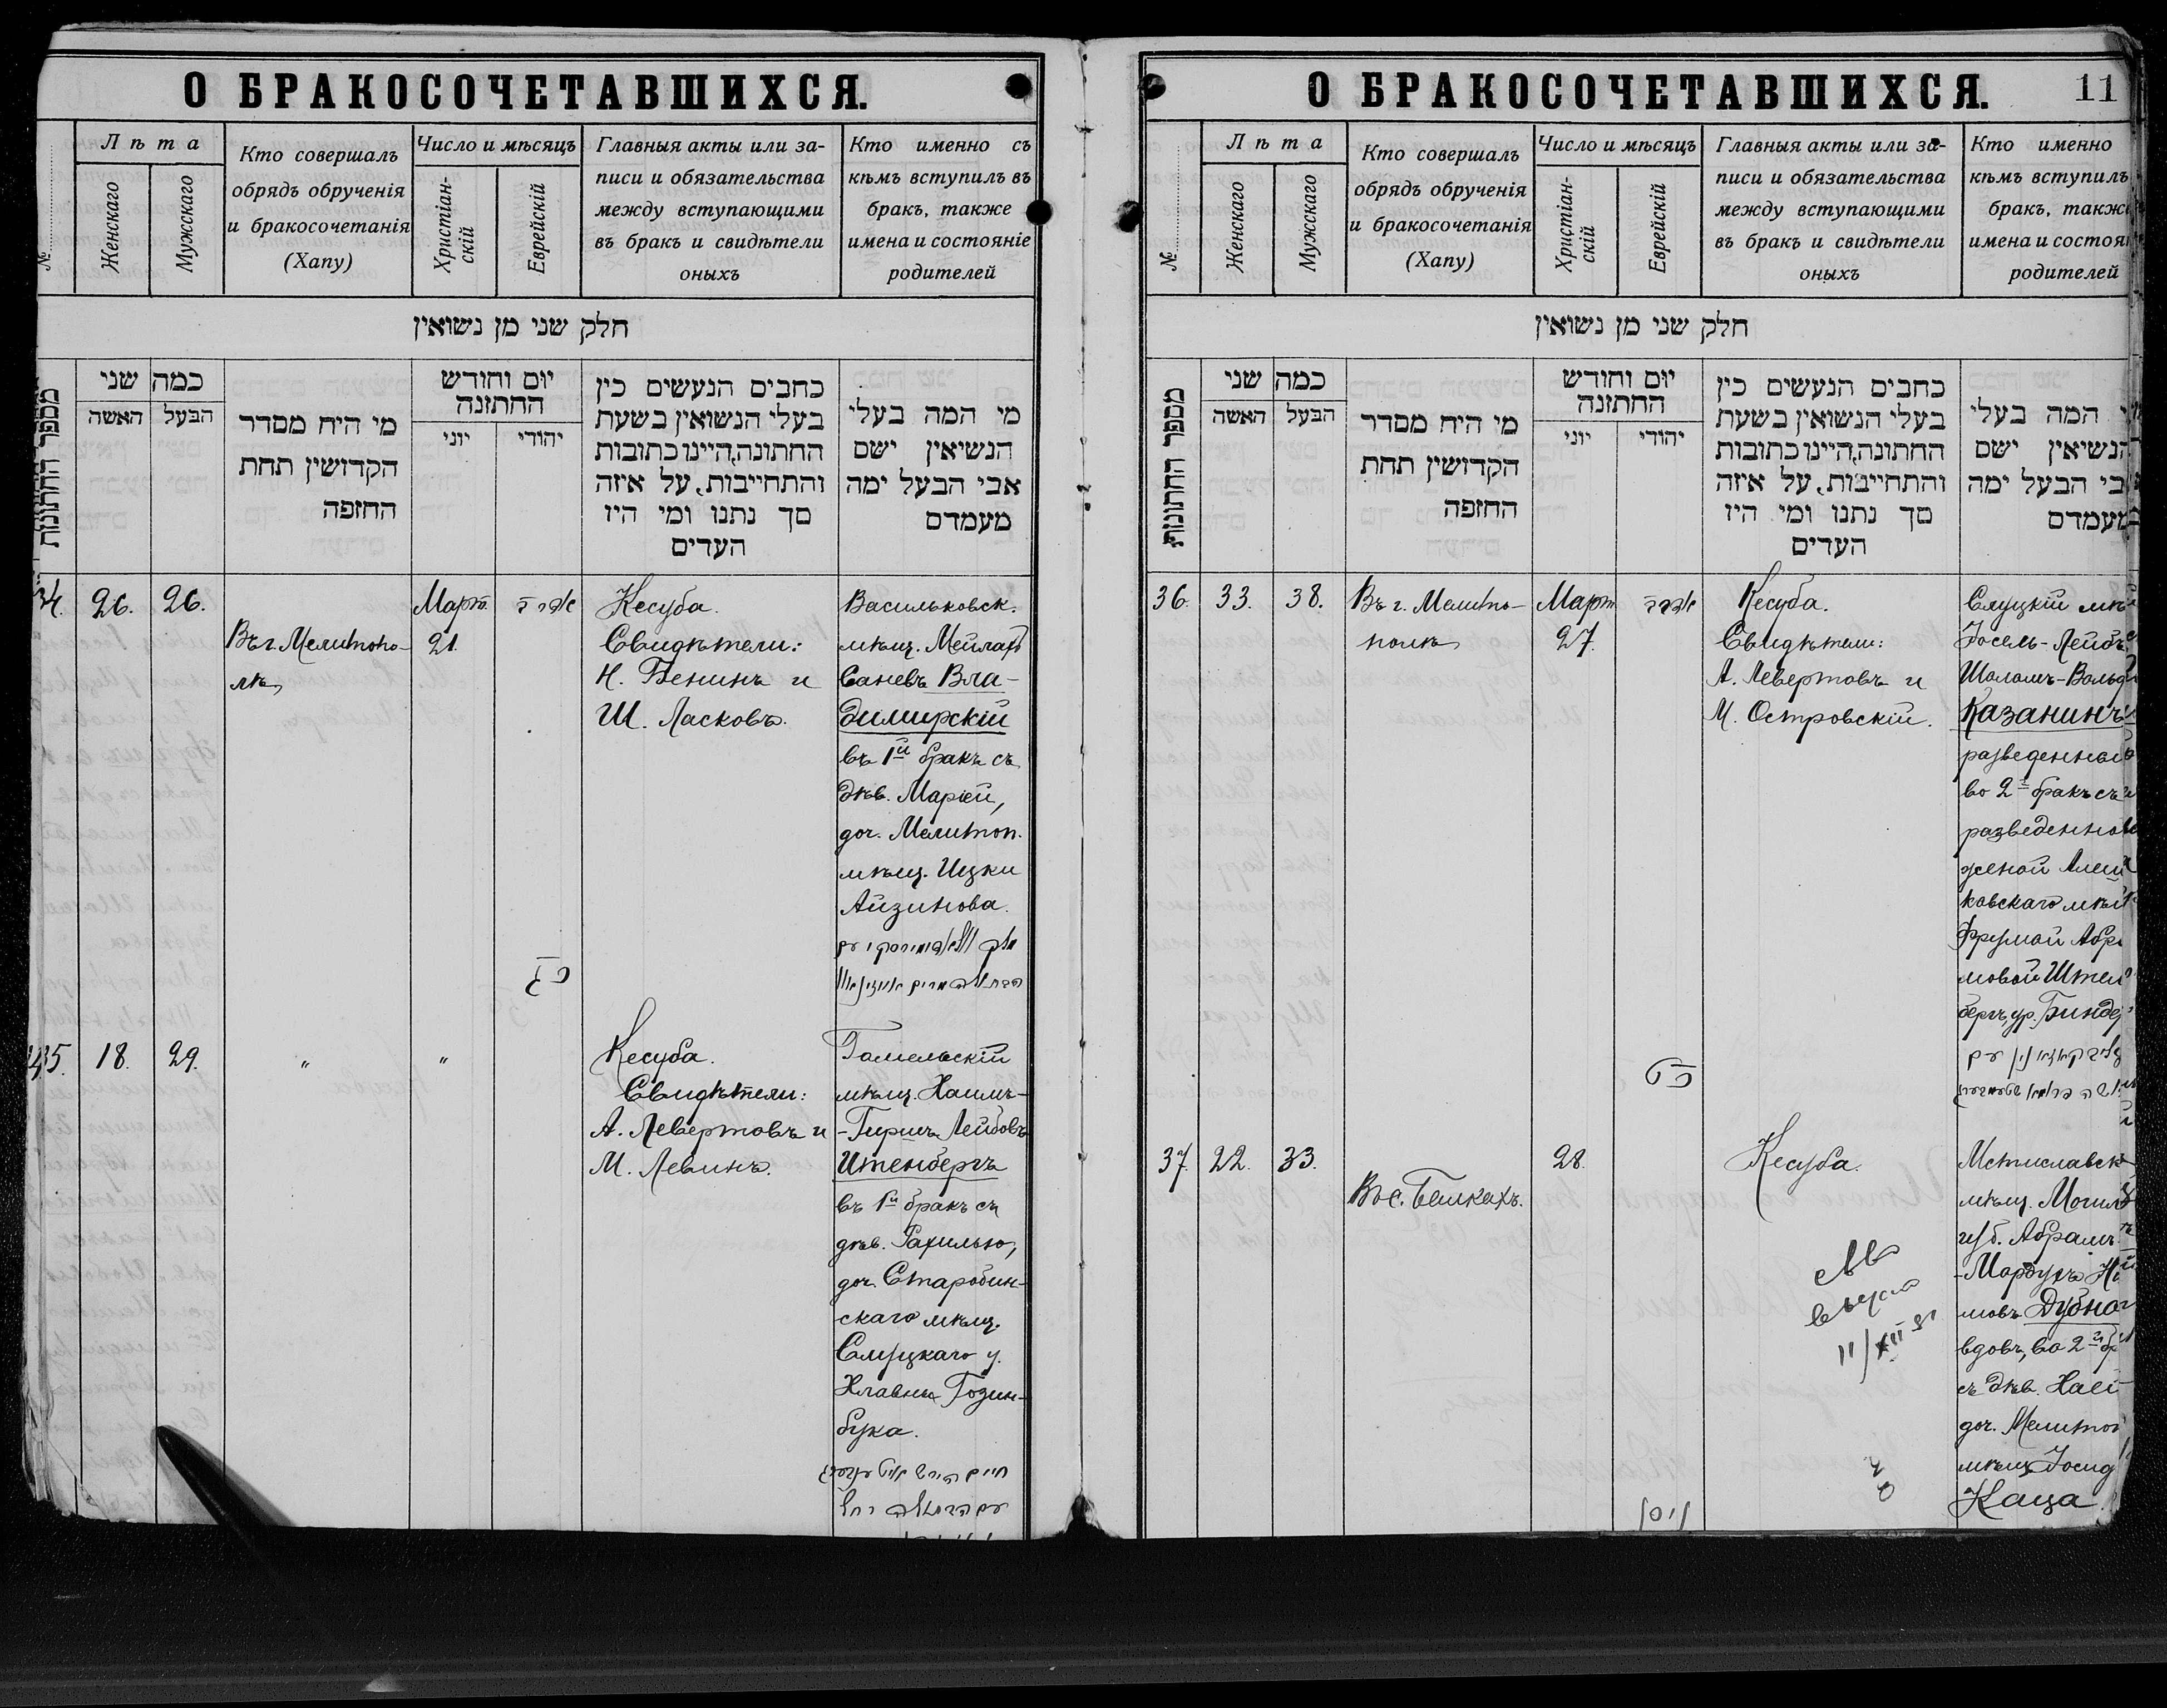 О БРАКОСОЧЕТАВШИХСЯ.
№
Лѣта
Женскаго
Мужскаго
Кто совершалъ
обрядъ обрученія
и бракосочетанія
(Хапу)
Число и мѣсяцъ
Христіан-
скій
Еврейскій
Главныя акты или за-
писи и обязательства
между вступающими
въ бракъ и свидѣтели
оныхъ
Кто именно съ
кѣмъ вступилъ въ
бракъ, также
имена и состояніе
родителей
חלק שני מן נשואין
מספר החתונות
כמה שני
האשה
הבעל
מי היח מסדר
הקדושין תחת
החזפה
יום וחודש
החתזנה
יוני
יהודי
כחבים הנעשים כין
בעלי הנשואין בשעת
החתונה, היינו כתובות
והתחייבות, על איזה
סך נתנו ומי היו
העדים
מי המה בעלי
הנשיאין ישם
אבי הבעל ימה
מעמדם
34. 26. 26.
Въ г. Мелитопо-
лѣ
Март.
21.
אדר ב
כג
Кесуба.
Свидѣтели:
Н. Бенинъ и
Ш. Ласковъ.
Васильковск.
мѣщ. Мейлахъ
Саневъ Вла-
димирскій
въ 1й бракъ съ
дѣв. Маріей,
доч. Мелитоп.
мѣщ. Ицки
Айзинова.
35. 18. 29.
"
"
Кесуба.
Свидѣтели:
А. Левертовъ и
М. Левинъ.
Гомельскій
мѣщ. Хаимъ-
-Гиршъ Лейбовъ
Штенбергъ
въ 1й бракъ съ
дѣв. Рахилью,
доч. Старобин-
скаго мѣщ.
Слуцкаго у.
Хлавны Розин-
бука.
О БРАКОСОЧЕТАВШИХСЯ.
11
№
Лѣта
Женскаго
Мужскаго
Кто совершалъ
обрядъ обрученія
и бракосочетанія
(Хапу)
Число и мѣсяцъ
Христіан-
скій
Еврейскій
Главныя акты или за-
писи и обязательства
между вступающими
въ бракъ и свидѣтели
оныхъ
Кто именно
кѣмъ вступилъ
бракъ, также
имена и состоя
родителей
חלק שני מן נשואין
מספר החתונות
כמה שני
האשה
הבעל
מי היח מסדר
הקדושין תחת
החזפה
יום וחודש
החתזנה
יוני
יהודי
כחבים הנעשים כין
בעלי הנשואין בשעת
החתונה, היינו כתובות
והתחייבות, על איזה
סך נתנו ומי היז
העדים
י המה בעלי
הנשיאין ישם
בי הבעל ימה
מעמדם
36. 33. 38.
Въ г. Мелито-
полѣ
Март
27.
אדר ב
כט
Кесуба.
Свидѣтели:
А. Левертовъ и
М. Островскій.
Слуцкій мѣ
Іосель-Лейбъ
Шоломъ-Вольф
Казанинъ
разведенный
во 2й бракъ съ
разведенной
женой Алеш
ковскаго мѣщ
Фрумой Абра
мовой Штен
бергъ, ур. Бинде
37. 22. 33.
Въ с. Бѣлкахъ.
28.
ניסן
Кесуба.
Мстиславск
мѣщ. Могил
губ. Абрамъ
-Мордухъ
мовъ Дубно
вдовъ, во 2й бр
съ дѣв. Хаей
доч. Мелитоп
мѣщ. Іосид
Каца
11/XII